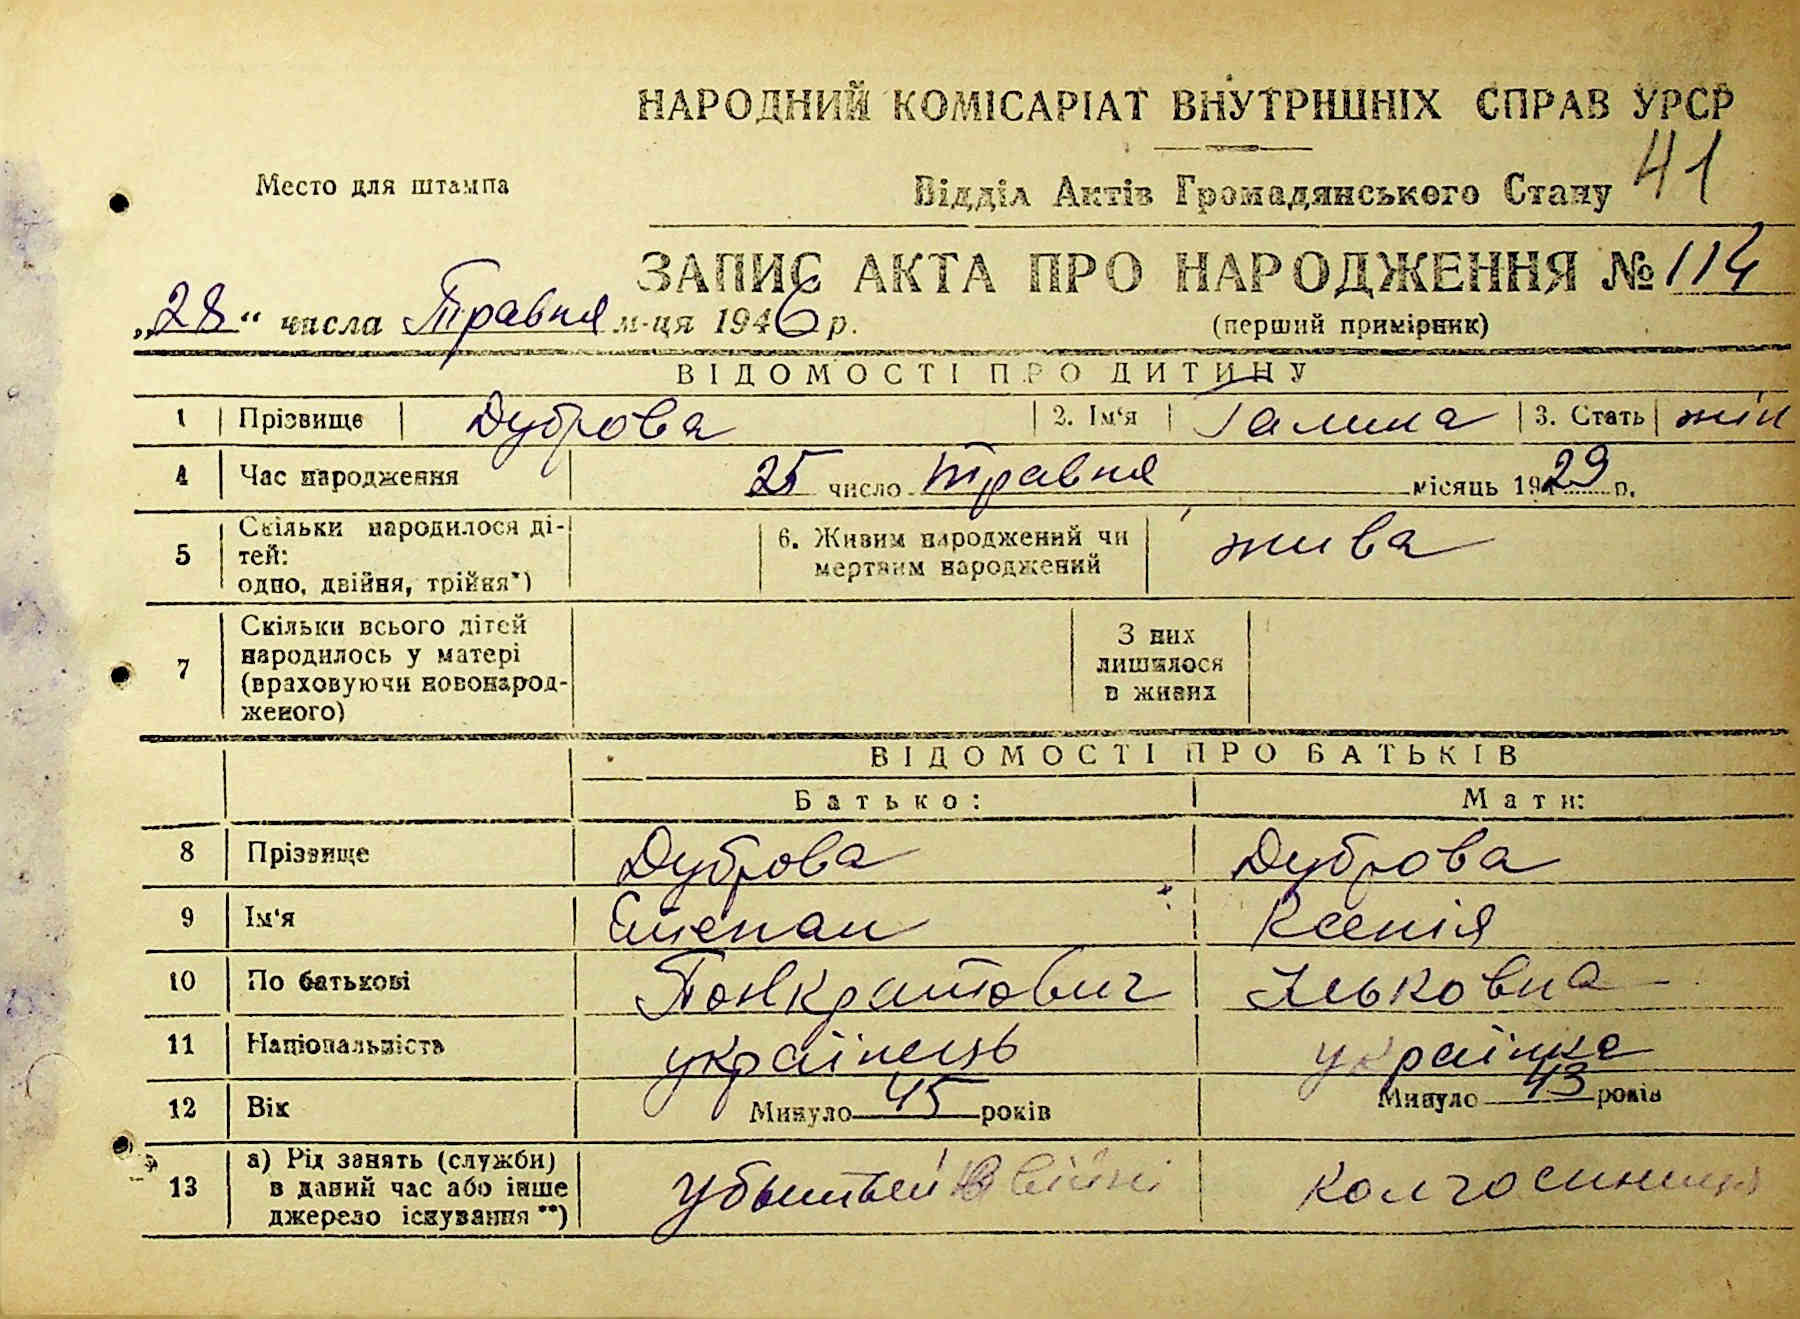 НАРОДНИЙ КОМІСАРІАТ ВНУТРІШНІХ СПРАВ УРСР
41
Место для штампа
Відділ Актів Громадянського Стану
ЗАПИС АКТА ПРО НАРОДЖЕННЯ № 114
„28“ числа Травня м-ця 1946 р.
(перший примірник)
ВІДОМОСТІ ПРО ДИТИНУ
1 Прізвище Дуброва 2. Ім'я Галина 3. Стать жін
4 Час народження 25 число травня місяць 1929 р.
5 Скільки народилося ді-
тей:
одно, двійня, трійня*)
6. Живим народжений чи
мертвим народжений
жива
7 Скільки всього дітей
народилось у матері
(враховуючи новонарод-
женого)
З них
лишилося
в живих
ВІДОМОСТІ ПРО БАТЬКІВ
Батько: Мати:
8 Прізвище Дуброва Дуброва
9 Ім'я Степан Ксенія
10 По батькові Понкратович Ільковна
11 Національність українець українка
12 Вік Минуло 45 років Минуло 43 років
13 а) Рід занять (служби)
в даний час або інше
джерело існування **)
убитий в війні колгоспниця